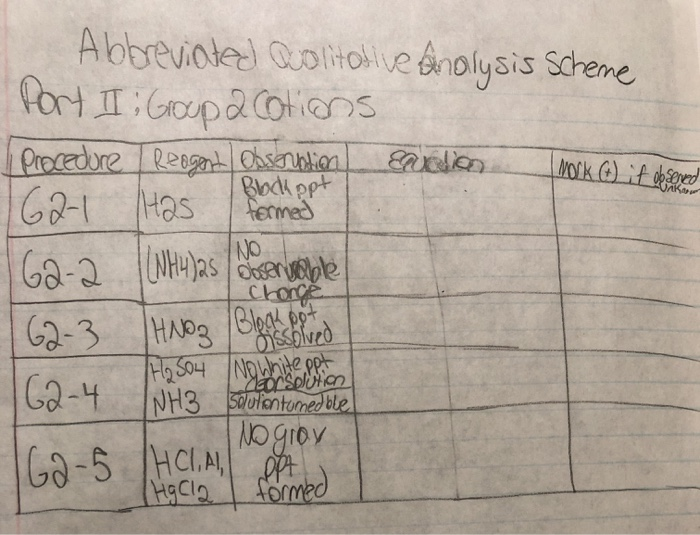 Abbreviated Qualitative Analysis Scheme
Part II: Group 2 Cations
Procedure Reagent Observation Equation Mark (+) if observed
Unknown
G2-1 H2S Black ppt
formed
G2-2 (NH4)2S No
observable
change
G2-3 HNO3 Black ppt
dissolved
G2-4 H2SO4 No white ppt
clear solution
NH3 solution turned blue
G2-5 HCl, Al,
HgCl2 No gray
ppt
formed